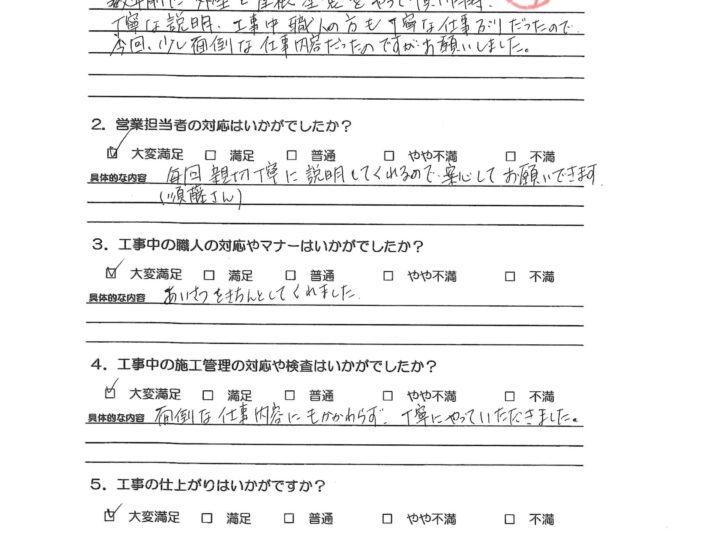 数年前に外壁と屋根塗装をやって頂いた時、
丁寧な説明、工事中職人の方も丁寧な仕事ぶりだったので、
今回、少し面倒な仕事内容だったのですがお願いしました。
2．営業担当者の対応はいかがでしたか？
☑ 大変満足 □ 満足 □ 普通 □ やや不満 □ 不満
具体的な内容 毎回親切丁寧に説明してくれるので、安心してお願いできます。
(須藤さん)
3．工事中の職人の対応やマナーはいかがでしたか？
☑ 大変満足 □ 満足 □ 普通 □ やや不満 □ 不満
具体的な内容 あいさつをきちんとしてくれました。
4．工事中の施工管理の対応や検査はいかがでしたか？
☑ 大変満足 □ 満足 □ 普通 □ やや不満 □ 不満
具体的な内容 面倒な仕事内容にもかかわらず、丁寧にやっていただきました。
5．工事の仕上がりはいかがですか？
☑ 大変満足 □ 満足 □ 普通 □ やや不満 □ 不満